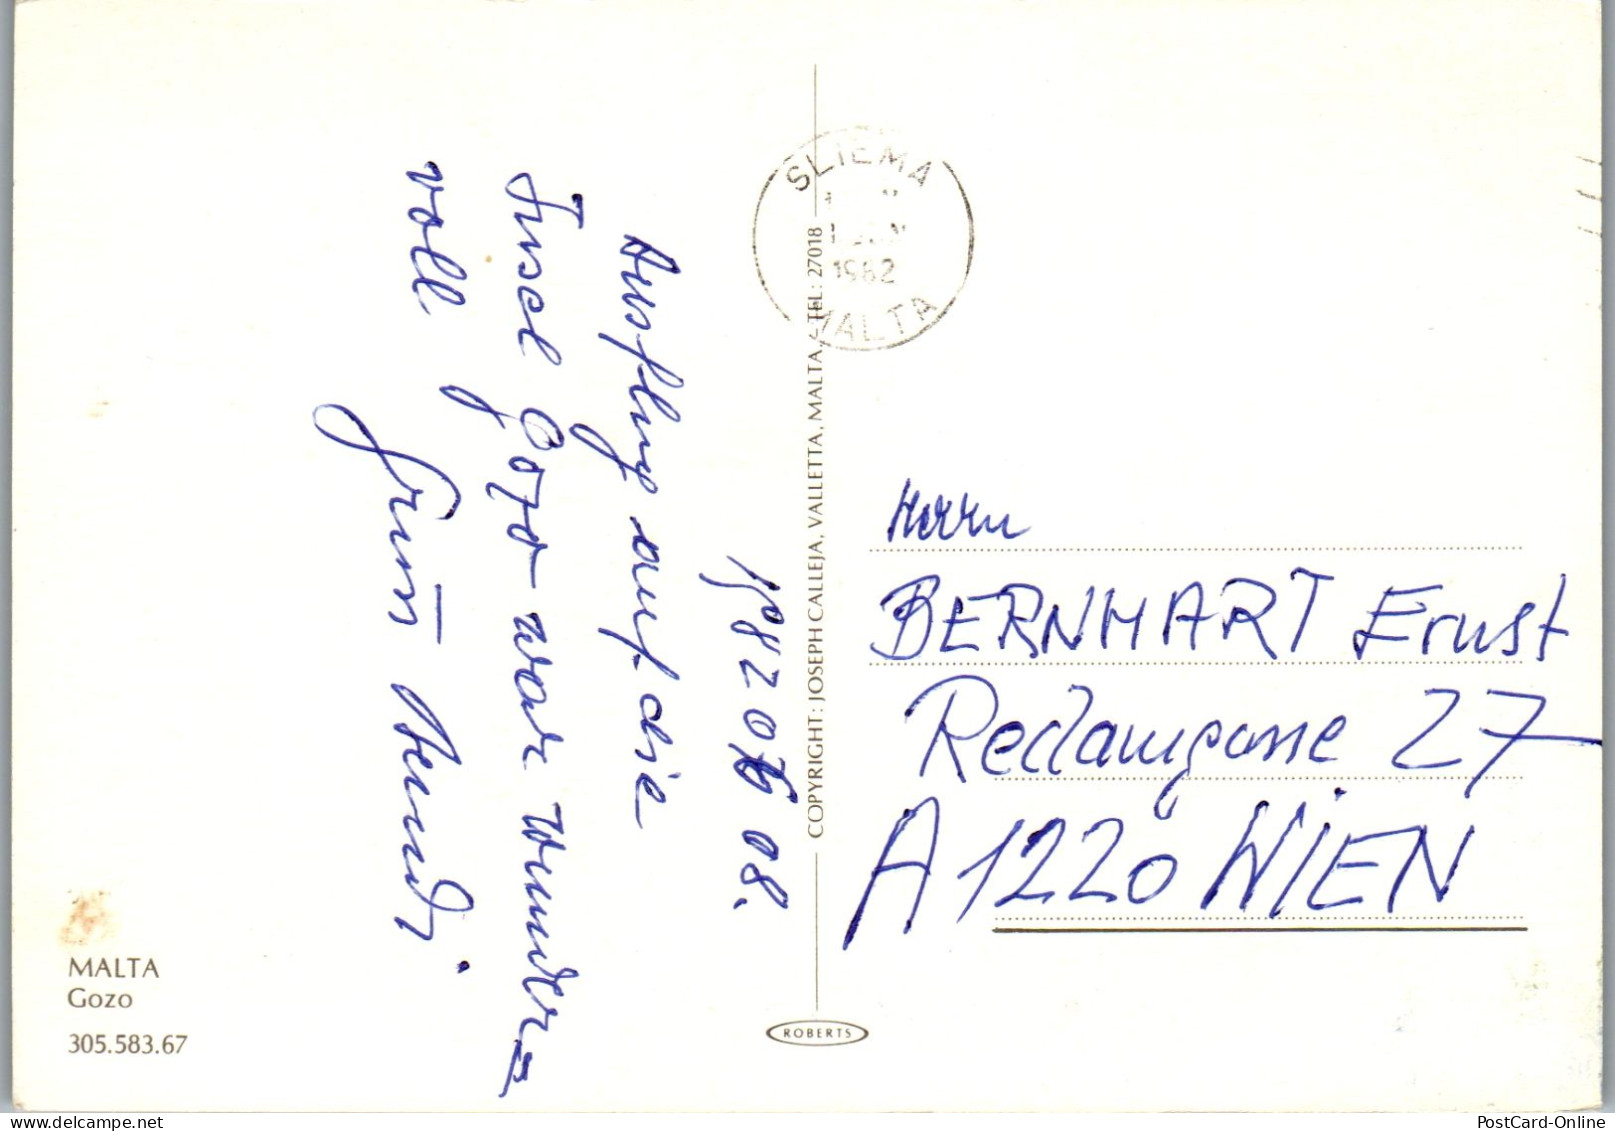 1982 06 08.
Ausflug auf die
Insel Gozo war wunder=
voll
Gruß Haendi
SLIEMA
1982
MALTA
COPYRIGHT: JOSEPH CALLEJA, VALLETTA, MALTA, TEL: 27018
Herrn
BERNHART Ernst
Reclamgasse 27
A 1220 WIEN
MALTA
Gozo
305.583.67
ROBERTS
PostCard-Online